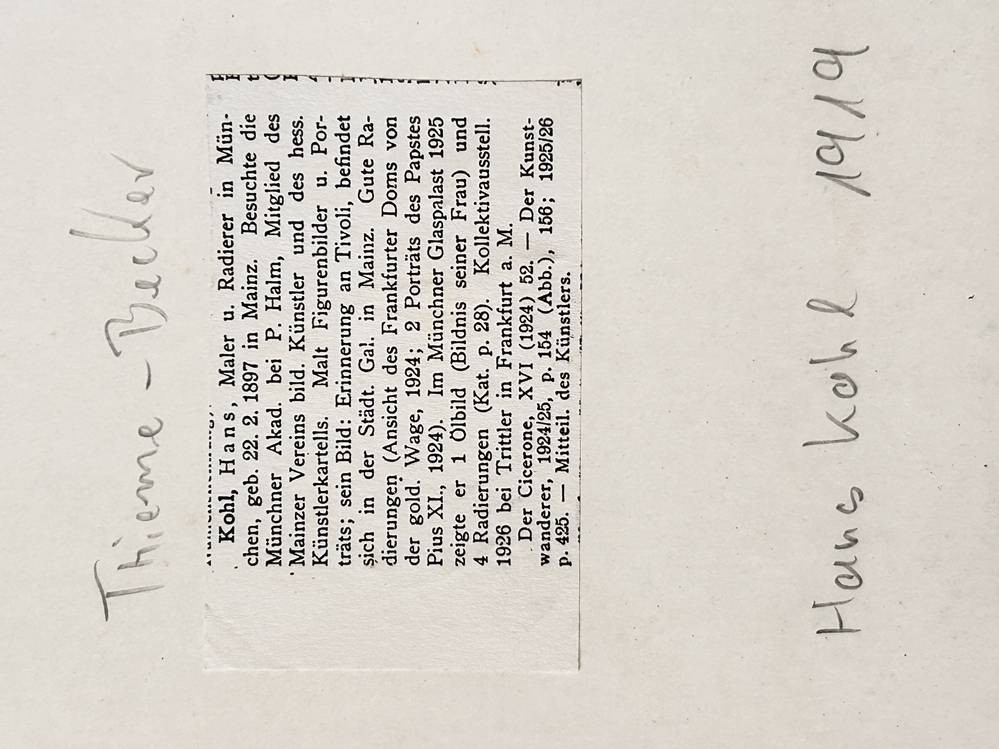 Thieme - Becker
Kohl, Hans, Maler u. Radierer in Mün-
chen, geb. 22. 2. 1897 in Mainz. Besuchte die
Münchner Akad. bei P. Halm, Mitglied des
Mainzer Vereins bild. Künstler und des hess.
Künstlerkartells. Malt Figurenbilder u. Por-
träts; sein Bild: Erinnerung an Tivoli, befindet
sich in der Städt. Gal. in Mainz. Gute Ra-
dierungen (Ansicht des Frankfurter Doms von
der gold. Wage, 1924; 2 Porträts des Papstes
Pius XI., 1924). Im Münchner Glaspalast 1925
zeigte er 1 Ölbild (Bildnis seiner Frau) und
4 Radierungen (Kat. p. 28). Kollektivausstell.
1926 bei Trittler in Frankfurt a. M.
Der Cicerone, XVI (1924) 52. — Der Kunst-
wanderer, 1924/25, p. 154 (Abb.), 156; 1925/26
p. 425. — Mitteil. des Künstlers.
Hans Kohl 1919